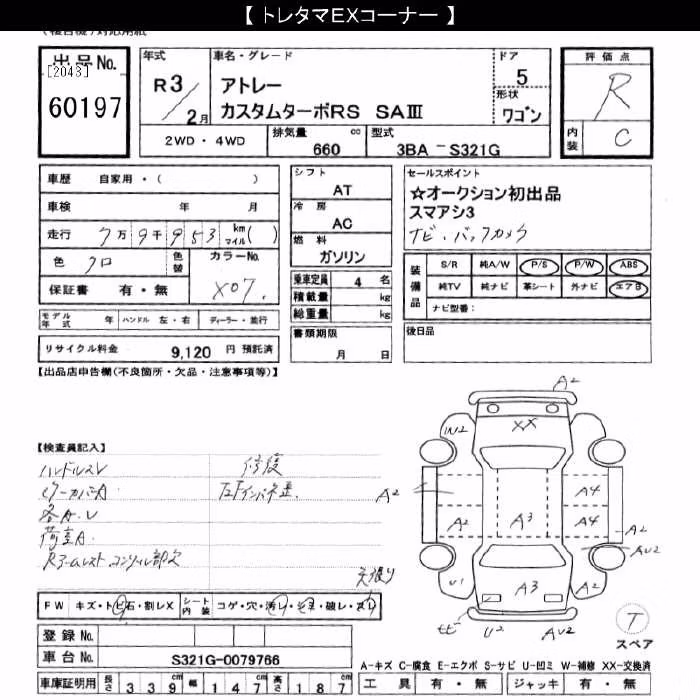 【 トレタマEXコーナー 】
出品No.
[2043]
60197
年式
R 3
2月
車名・グレード
アトレー
カスタムターボRS SAⅢ
ドア
5
形状
ワゴン
2WD・4WD
排気量 cc
660
型式
3BA - S321G
評価点
R
内装
C
車歴 自家用・( )
車検 年 月
走行 7万9千953 km マイル( )
色 クロ
色替
カラーNo.
X07.
保証書 有・無
モデル年式 年 ハンドル 左・右 ディーラー・並行
リサイクル料金 9,120 円 預託済
シフト
AT
冷房
AC
燃料
ガソリン
乗車定員 4 名
積載量 kg
総重量 kg
書類期限
月 日
セールスポイント
☆オークション初出品
スマアシ3
ナビ・バックカメラ
装備品
S/R 純A/W P/S P/W ABS
純TV 純ナビ 革シート 外ナビ エアB
ナビ型番:
後日品
【出品店申告欄(不良箇所・欠品・注意事項等)】
【検査員記入】
ハンドルスレ
各A.U
荷室A
修復
A2
XX
IN2
A2
A4
A2
A3
A4
A2
AU2
U1
A3
A2
U2
AU2
T
スペア
FW キズ・トビ石・割レX
シート内装 コゲ・穴・汚レ・シミ・破レ・スレ
登録No.
車台No. S321G-0079766
車庫証明用 長さ 339 cm 幅 147 cm 高さ 187 cm
A-キズ C-腐食 E-エクボ S-サビ U-凹ミ W-補修 XX-交換済
工具 有・無 ジャッキ 有・無